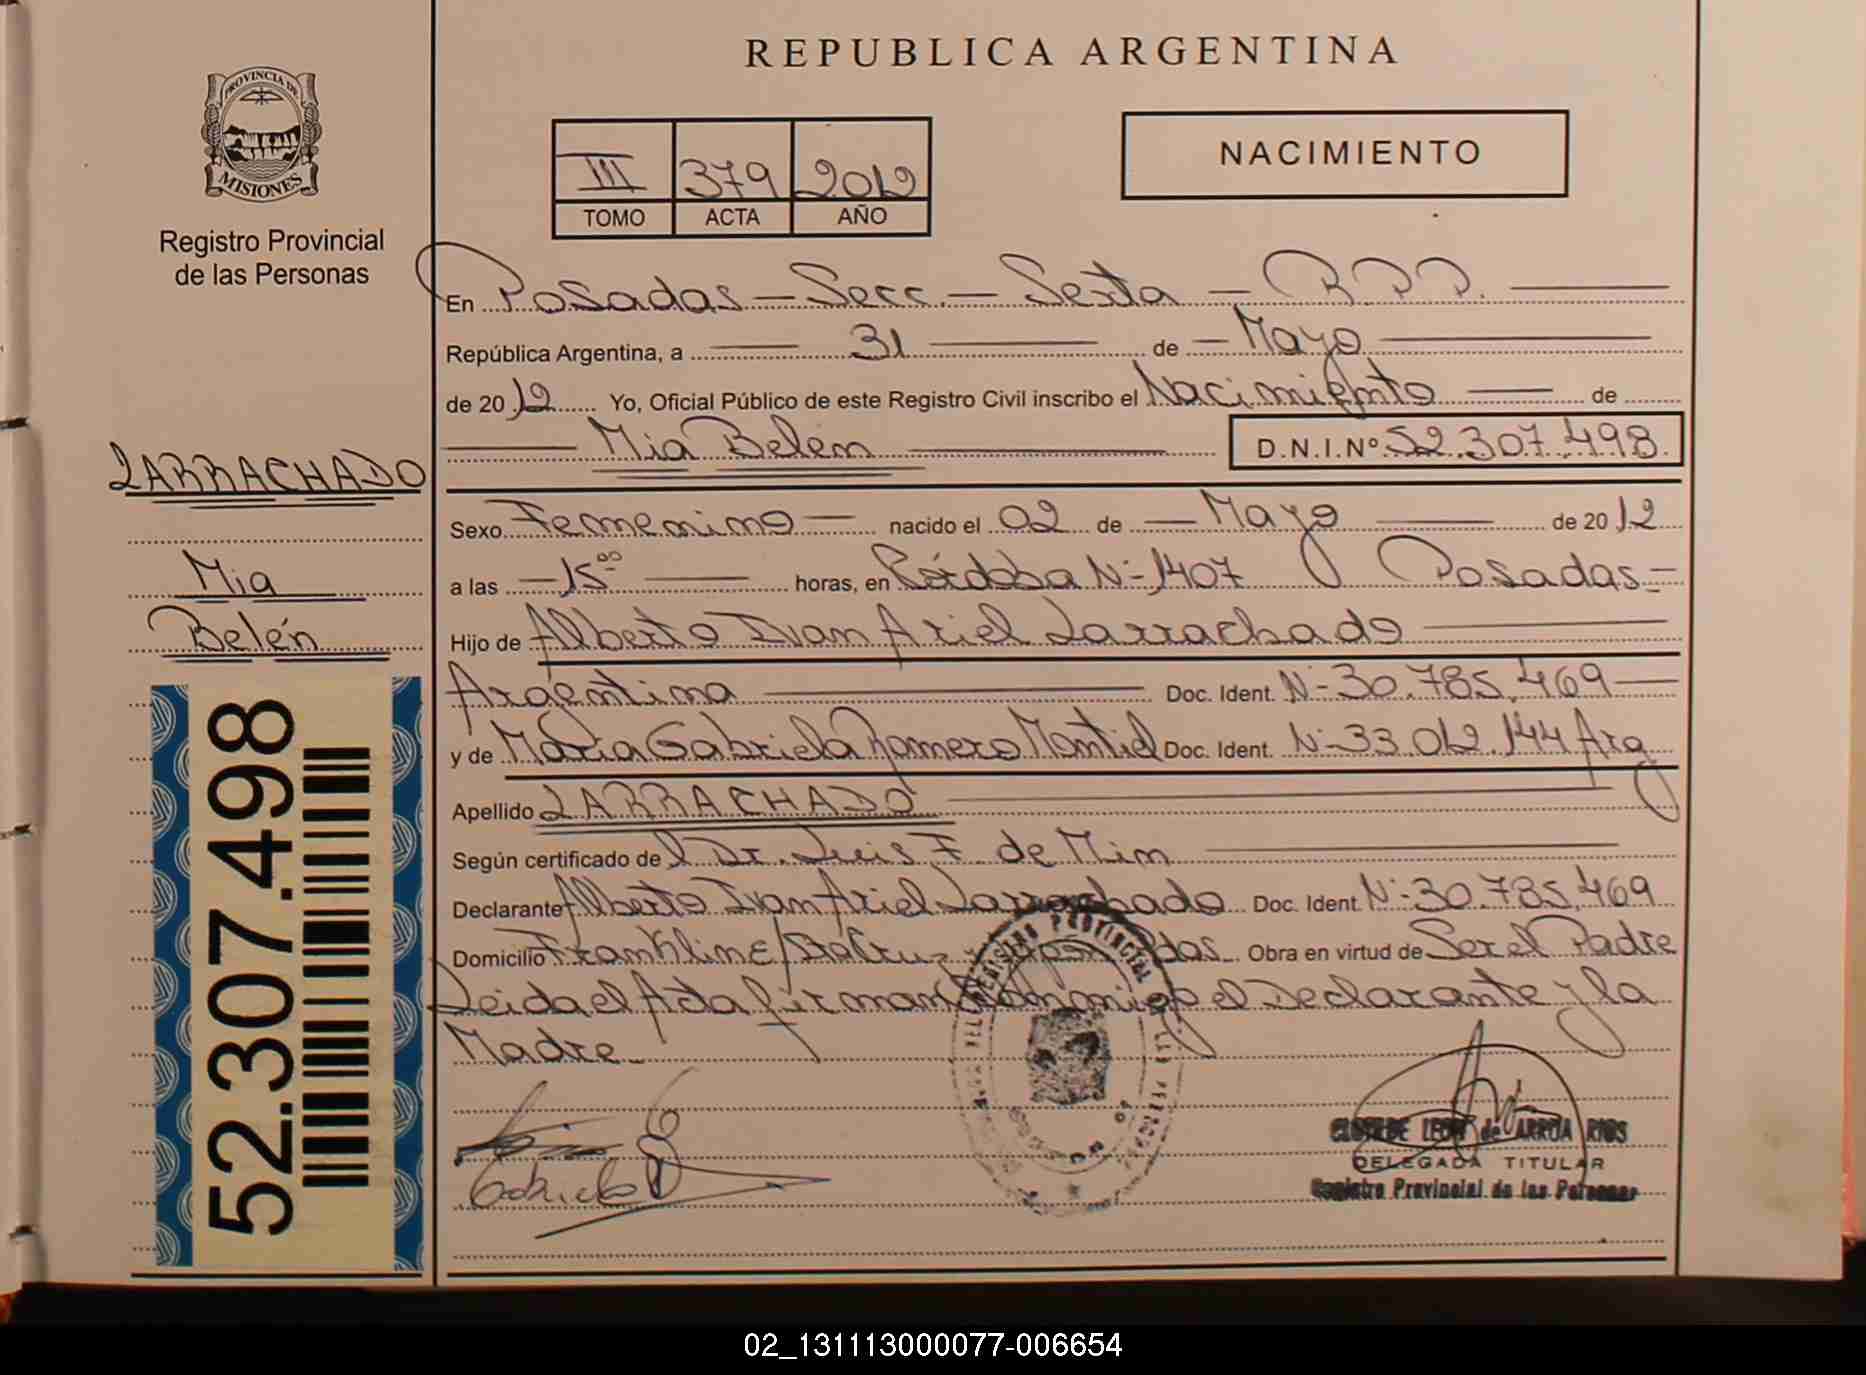 REPUBLICA ARGENTINA
PROVINCIA DE
MISIONES
Registro Provincial
de las Personas
III 379 2012
TOMO ACTA AÑO
NACIMIENTO
En Posadas - Secc. - Sexta - R.P.P.
República Argentina, a 31 de Mayo
de 2012 Yo, Oficial Público de este Registro Civil inscribo el Nacimiento de
Mia Belén D.N.I.Nº 52.307.498.
LARRACHADO
Mia
Belén
52.307.498
Sexo Femenino nacido el 02 de Mayo de 2012
a las 15⁰⁰ horas, en Córdoba Nº 1407 Posadas -
Hijo de Alberto Ivan Ariel Larrachado
Argentina Doc. Ident. Nº 30.785.469
y de María Gabriela Romero Montiel Doc. Ident. Nº 33.012.144 Arg
Apellido LARRACHADO
Según certificado del Dr. Luis F. de Mim
Declarante Alberto Ivan Ariel Larrachado Doc. Ident Nº 30.785.469
Domicilio Obra en virtud de Ser el Padre
Leida el Acta firman conmigo el Declarante y la
Madre.
REGISTRO PROVINCIAL DE LAS PERSONAS
DELEGADA TITULAR
Registro Provincial de las Personas
02_131113000077-006654